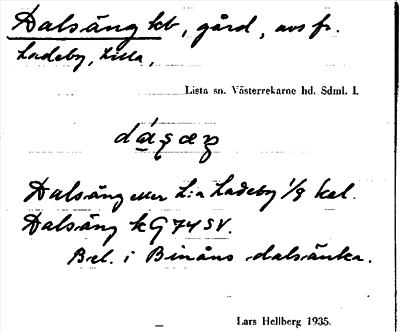 Dalsäng kb, gård, avs fr.
Ladeby, Lilla,
Lista sn. Västerrekarne hd. Sdml. I.
Dalsäng eller L:a Ladeby 1/8 kal.
Dalsäng k G 74 SV.
Bel. i Binåns dalsänka.
Lars Hellberg 1935.